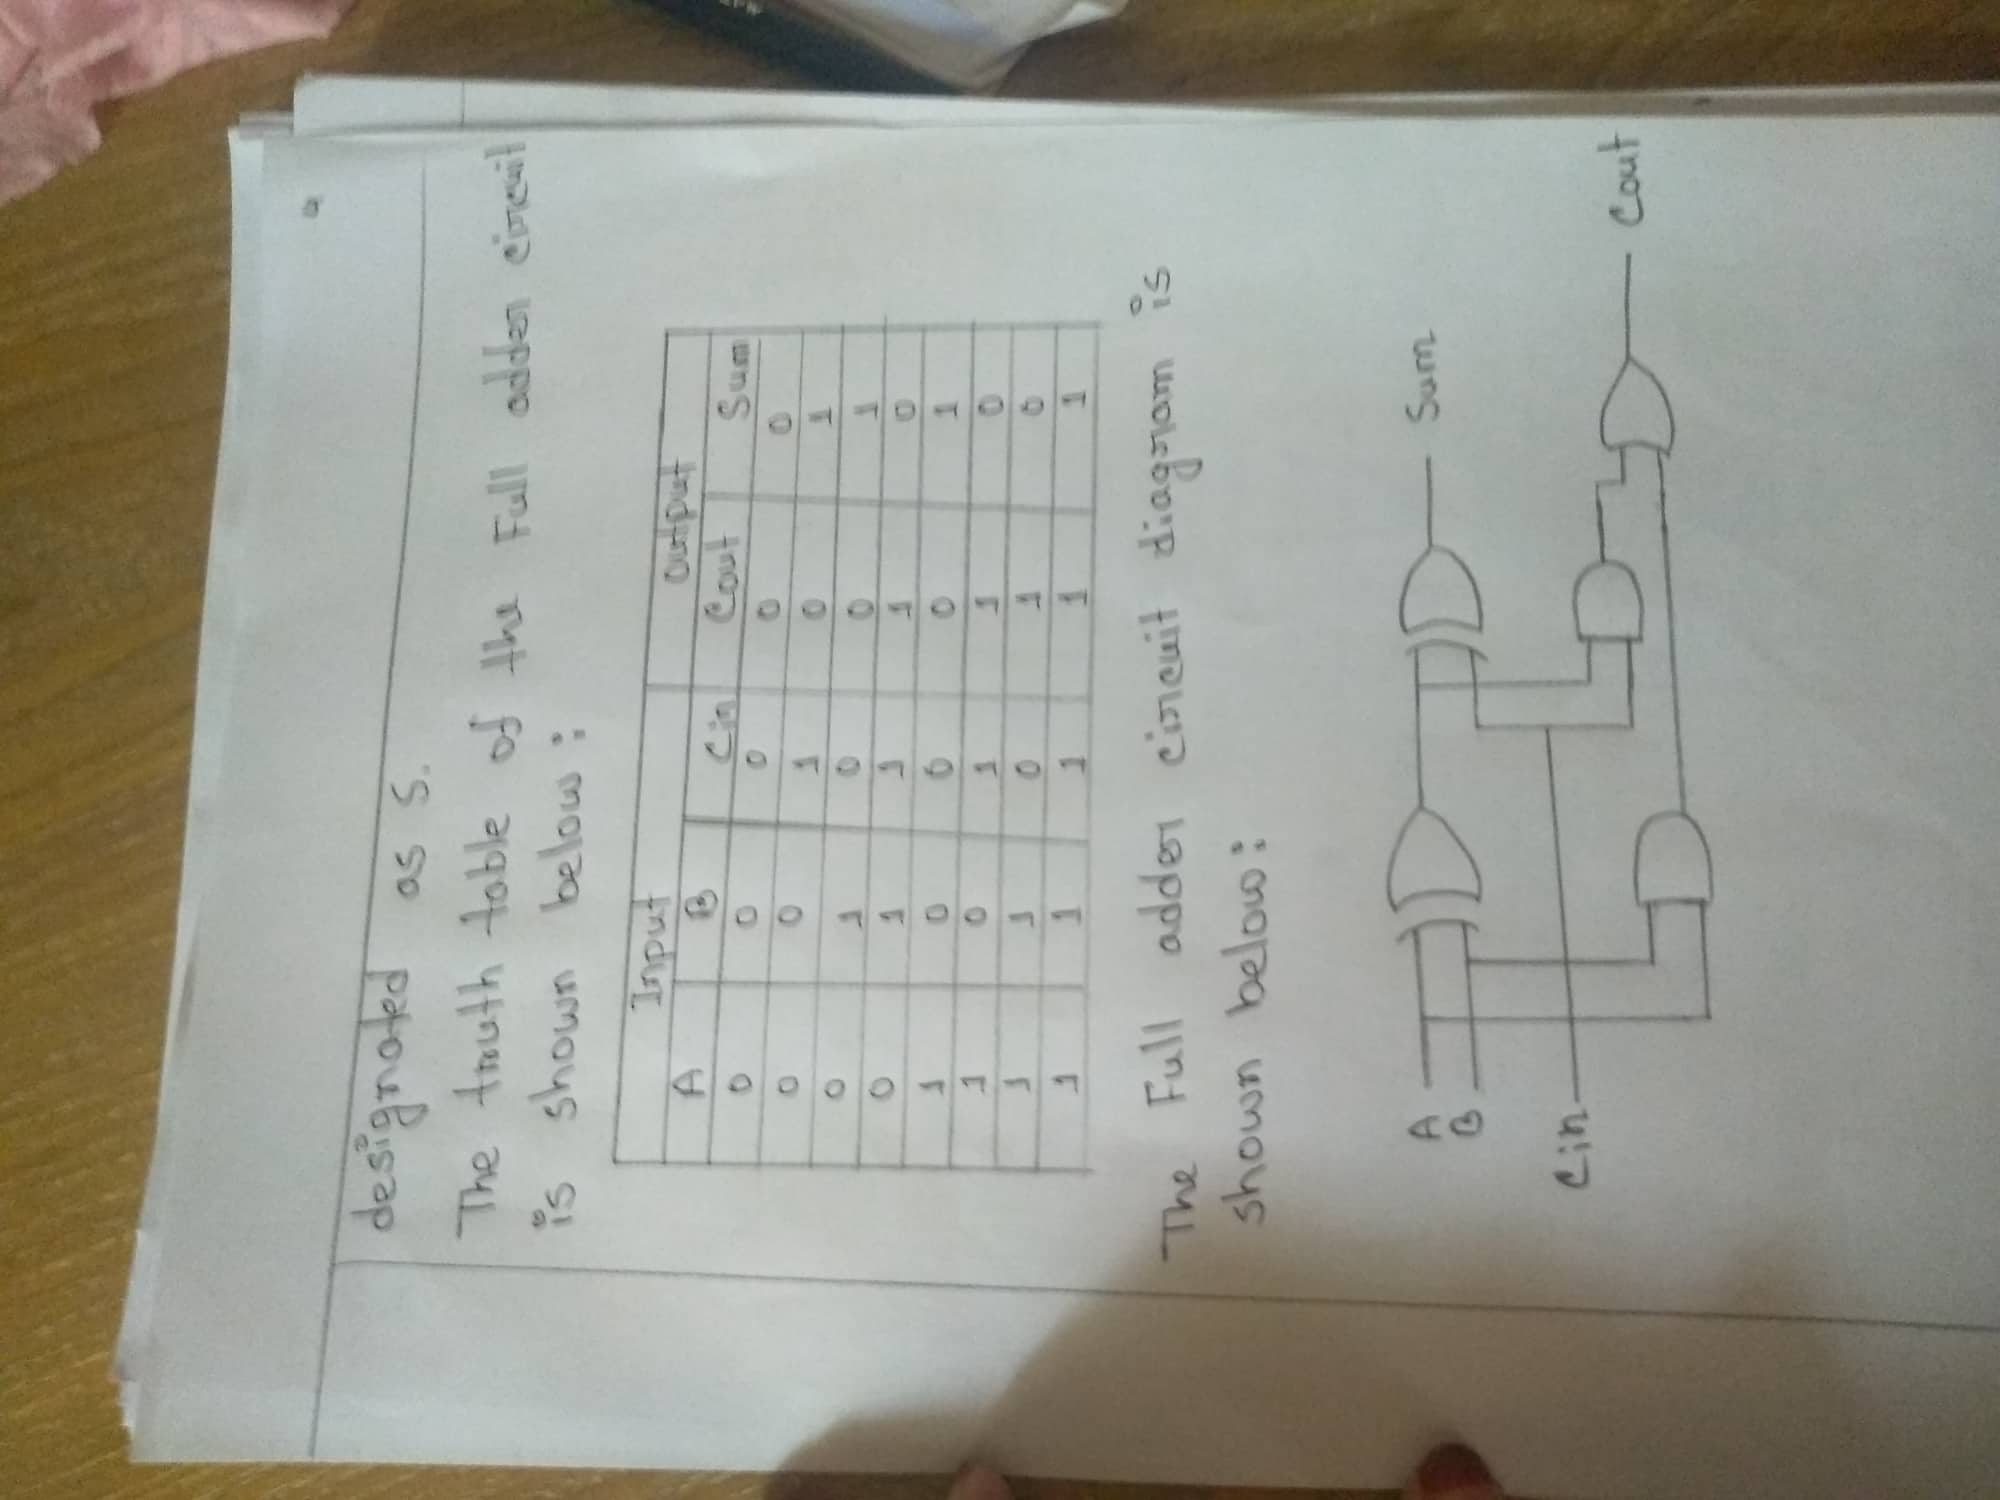 designated as S.
The truth table of the Full adder circuit
is shown below:
Input Output
A B Cin Cout Sum
0 0 0 0 0
0 0 1 0 1
0 1 0 0 1
0 1 1 1 0
1 0 0 0 1
1 0 1 1 0
1 1 0 1 0
1 1 1 1 1
The Full adder circuit diagram is
shown below:
A
B
Cin
Sum
Cout